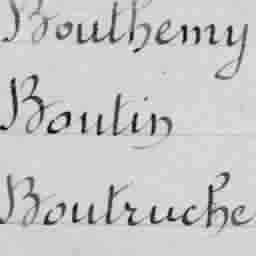 Bouthemy
Boutin
Boutruche